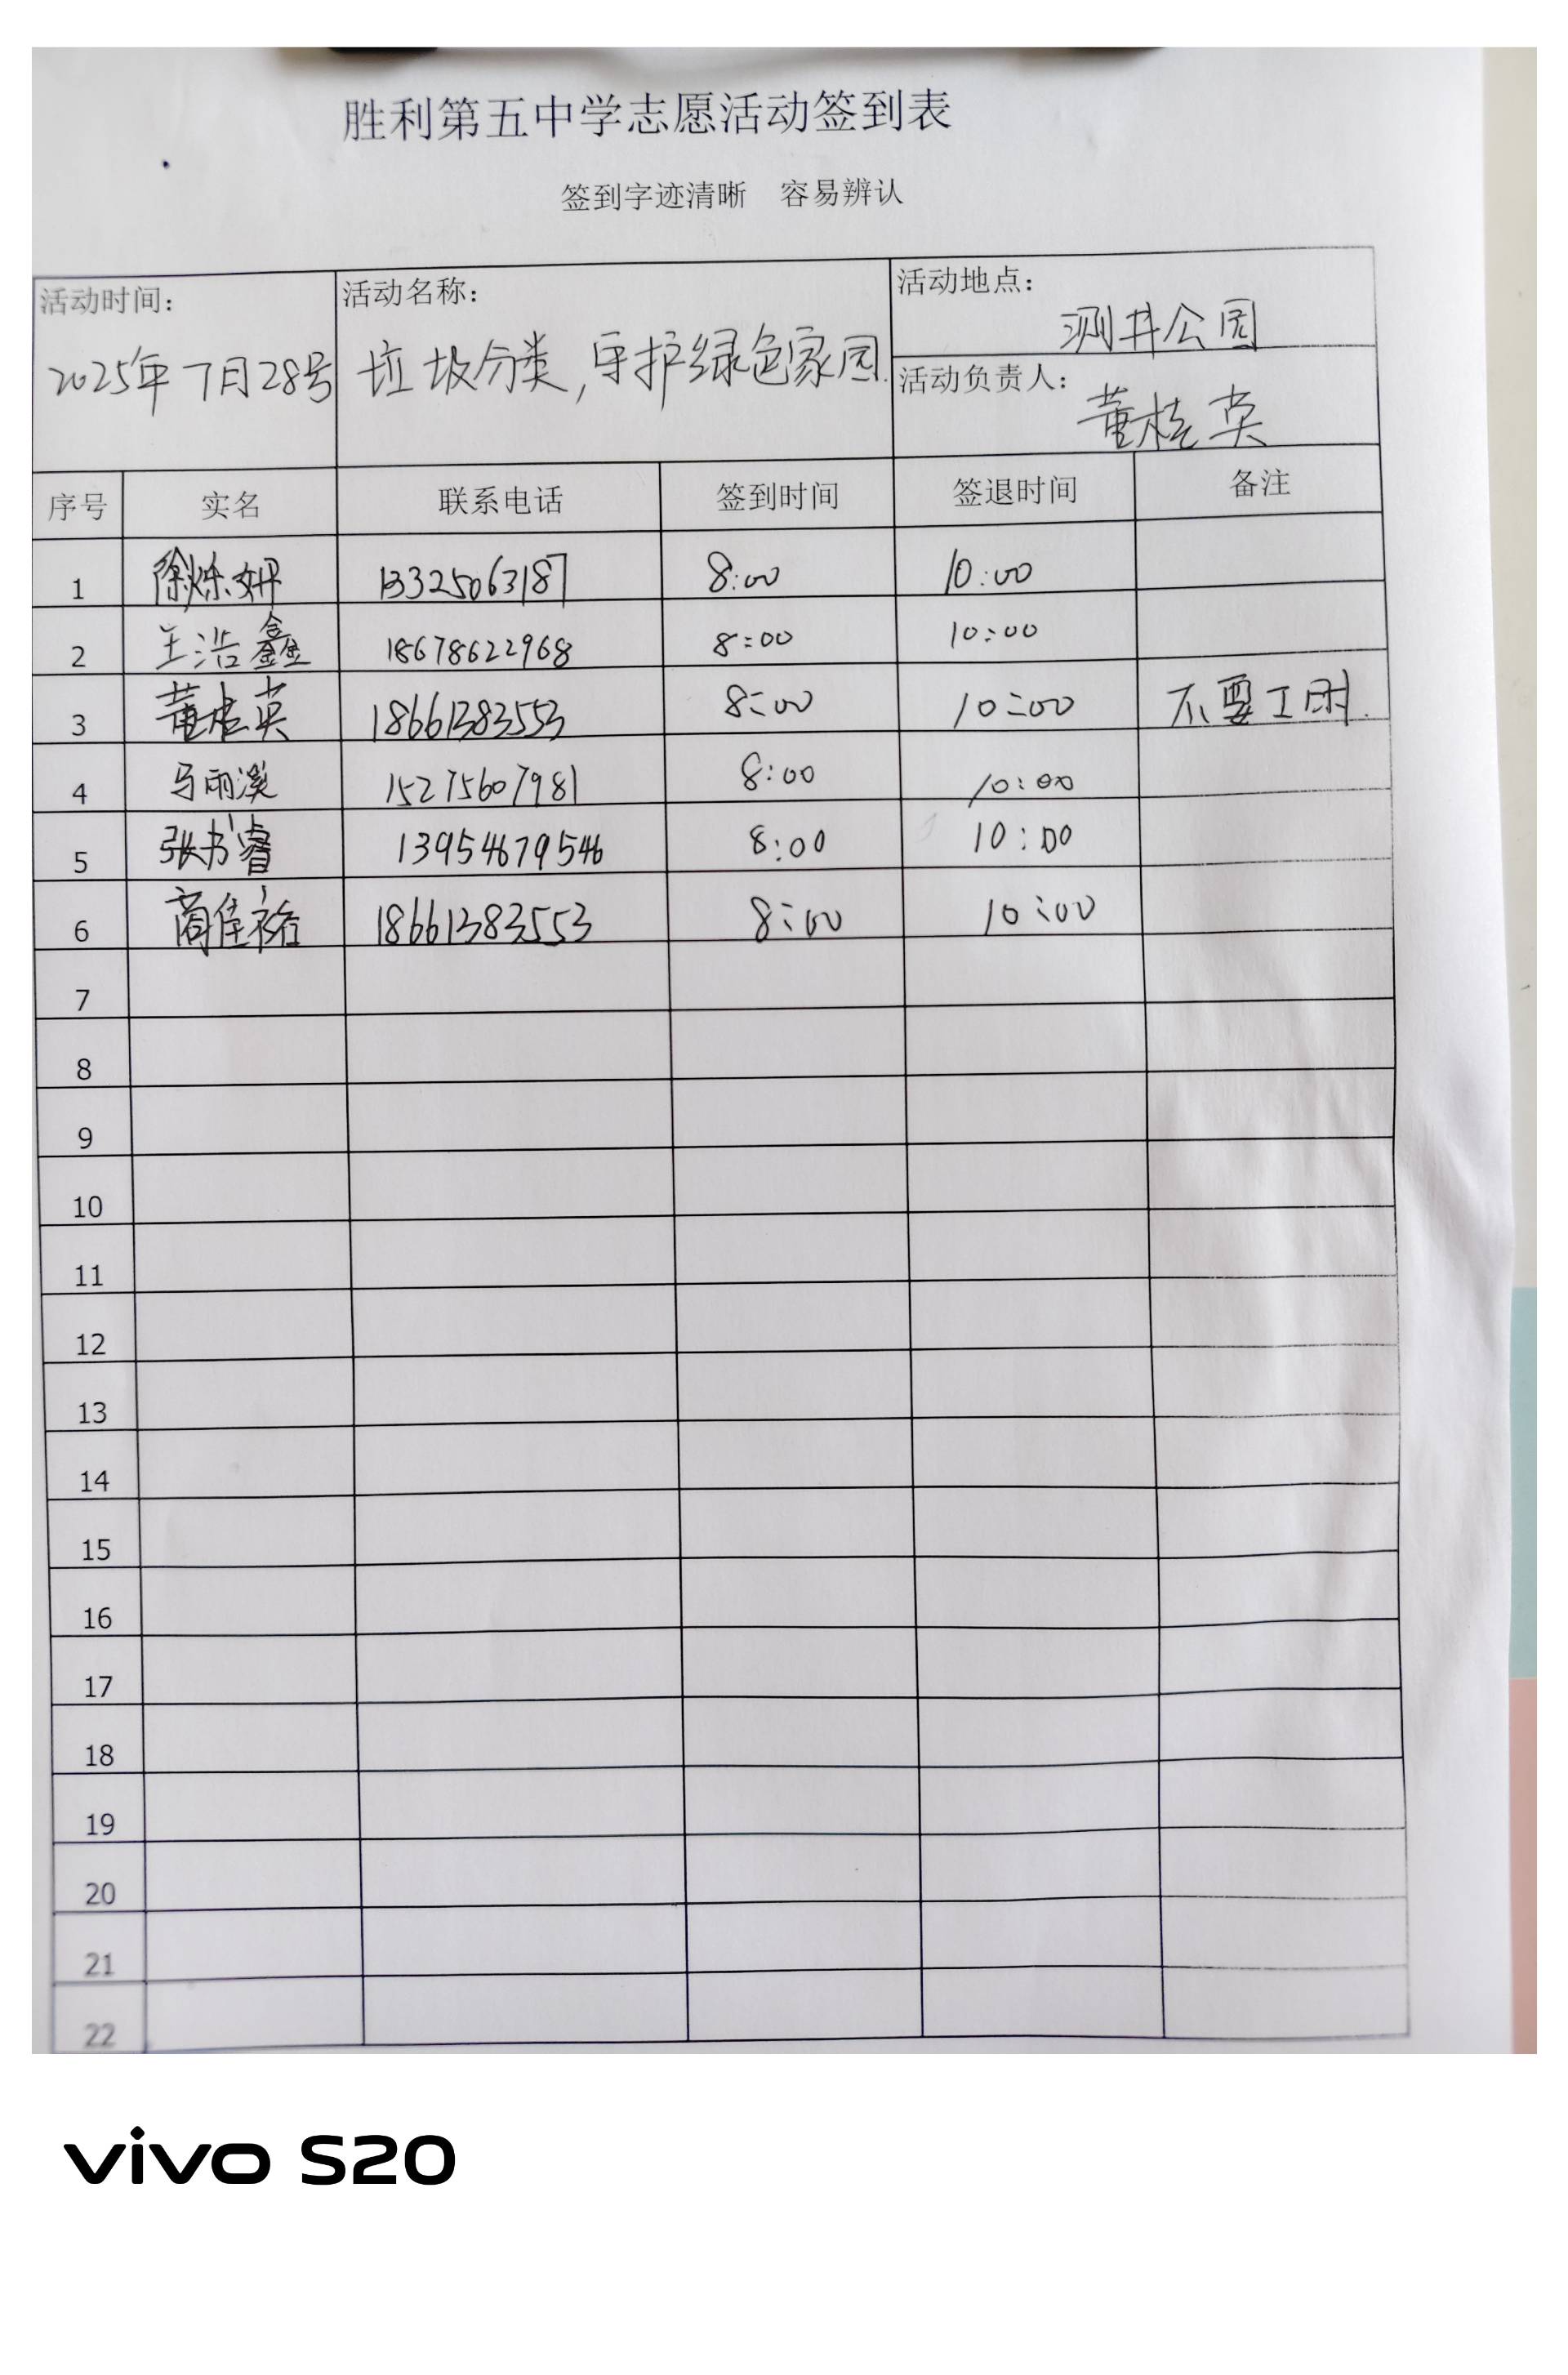 胜利第五中学志愿活动签到表
签到字迹清晰 容易辨认
活动时间: 活动名称: 活动地点:
2025年7月28号 垃圾分类,守护绿色家园. 测井公园
活动负责人:
董桂英
序号 实名 联系电话 签到时间 签退时间 备注
1 徐烁妍 13325063187 8:00 10:00
2 王浩鑫 18678622968 8:00 10:00
3 董桂英 18661383553 8:00 10:00 不要工时.
4 马雨溪 15275607981 8:00 10:00
5 张书睿 13954679546 8:00 10:00
6 商佳裕 18661383553 8:00 10:00
7
8
9
10
11
12
13
14
15
16
17
18
19
20
21
22
vivo S20